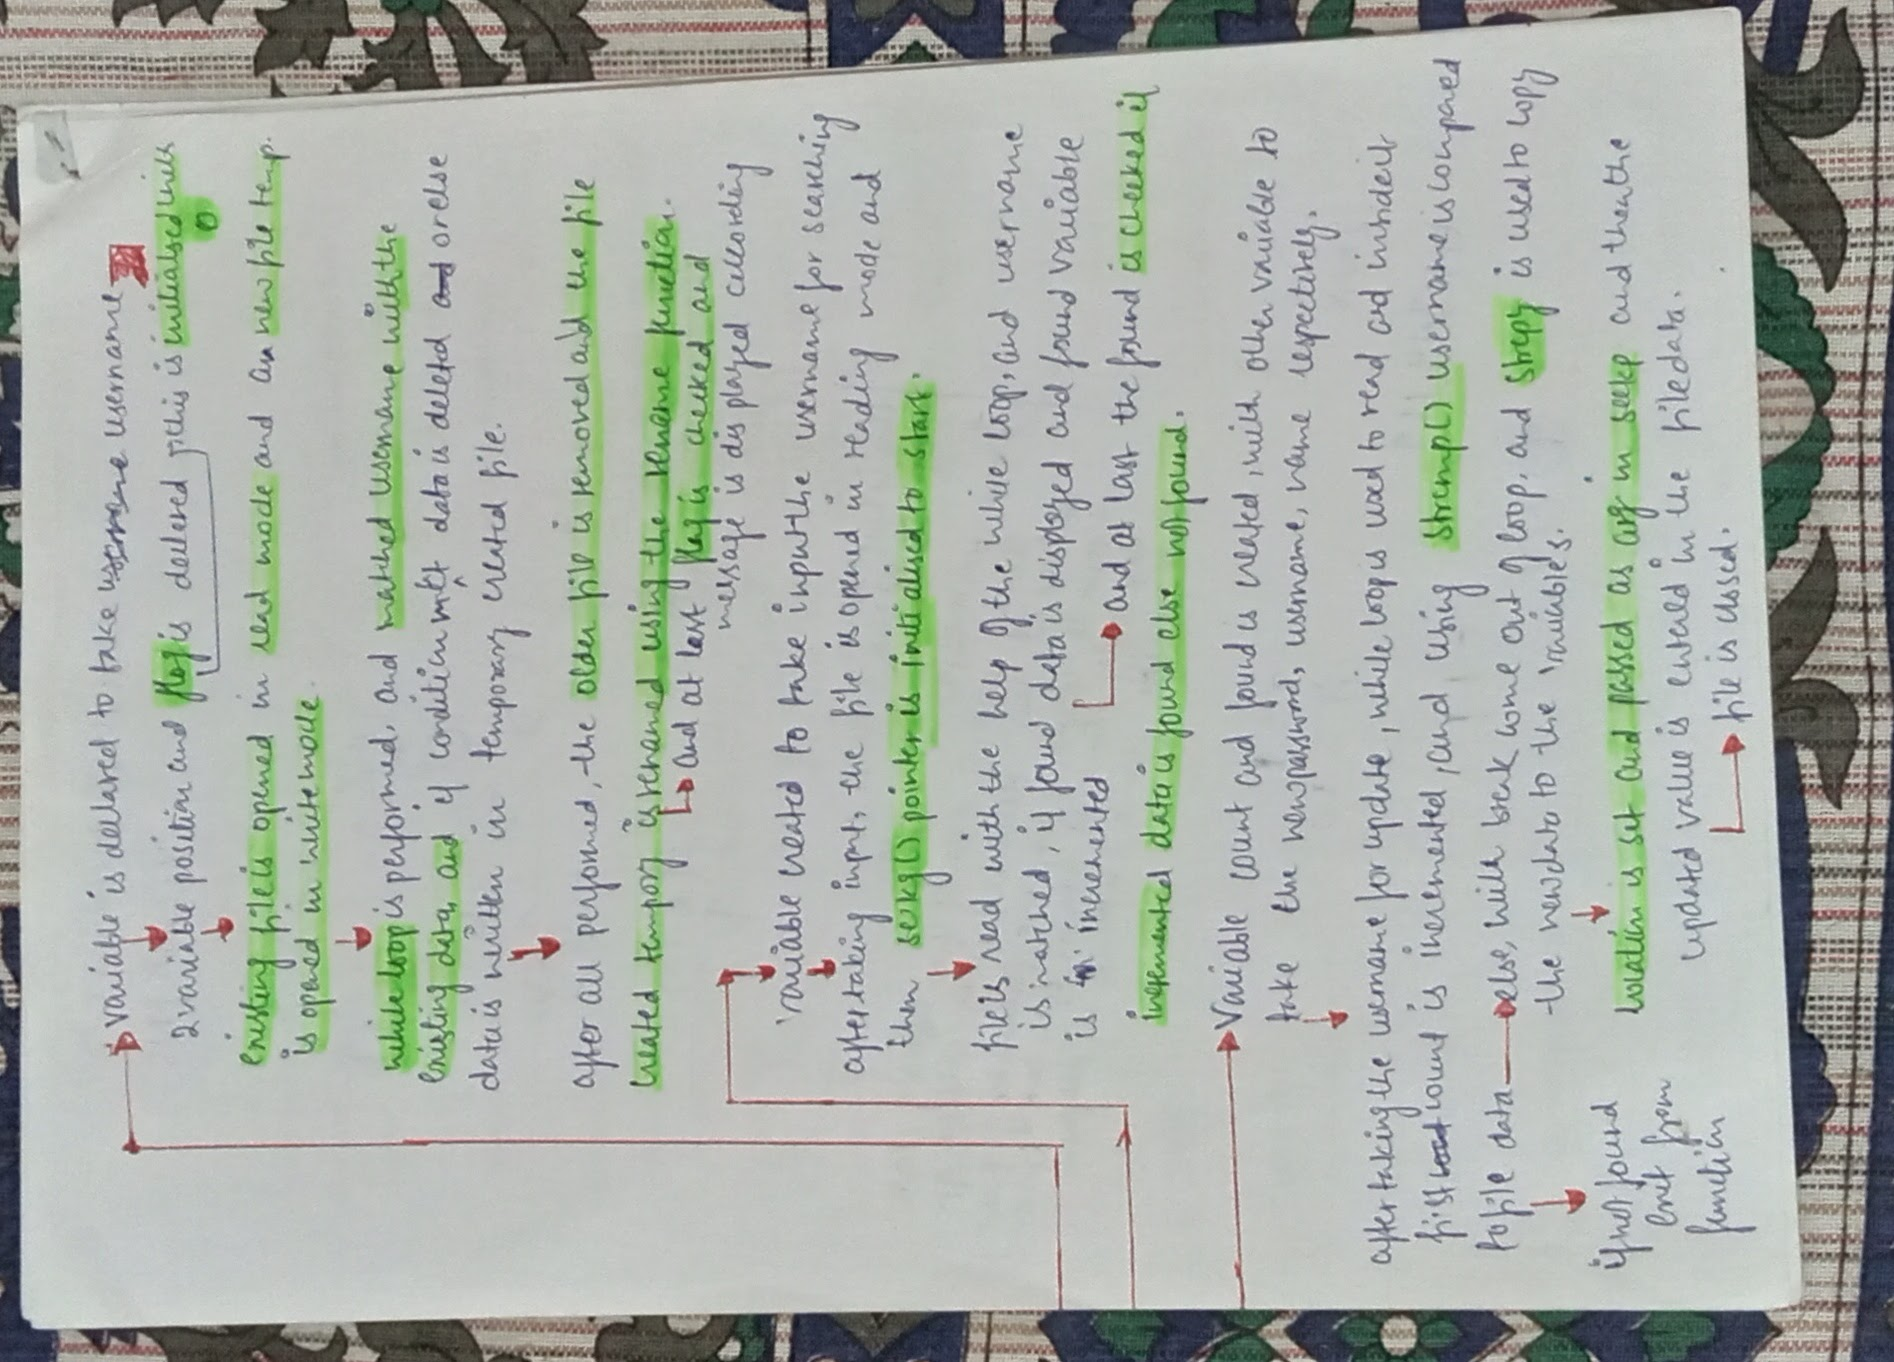 variable is declared to take username
2 variable position and flag is declared, this is initialised with
0
existing file is opened in read mode and a new file temp.
is opened in write mode.
while loop is performed, and matched username with the
existing data, and if condition mat data is deleted and or else
data is written in temporary created file.
after all performed, the older file is removed and the file
created tempory is renamed using the rename function.
and at last flag is checked and
message is displayed according
variable created to take input the username for searching
after taking input, the file is opened in reading mode and
then seekg() pointer is initialised to start.
file is read with the help of the while loop, and username
is matched, if found data is displayed and found variable
is incremented
and at last the found is checked if
incremented data is found else not found.
Variable count and found is created, with other variable to
take the newpassword, username, name respectively.
after taking the username for update, while loop is used to read and inside it
first count is incremented, and using strcmp() username is compared
to file data else, will break come out of loop, and strcpy is used to copy
the newdata to the variables.
if not found
exit from
function
location is set and passed as arg in seekp and then the
updated value is entered in the filedata.
file is closed.